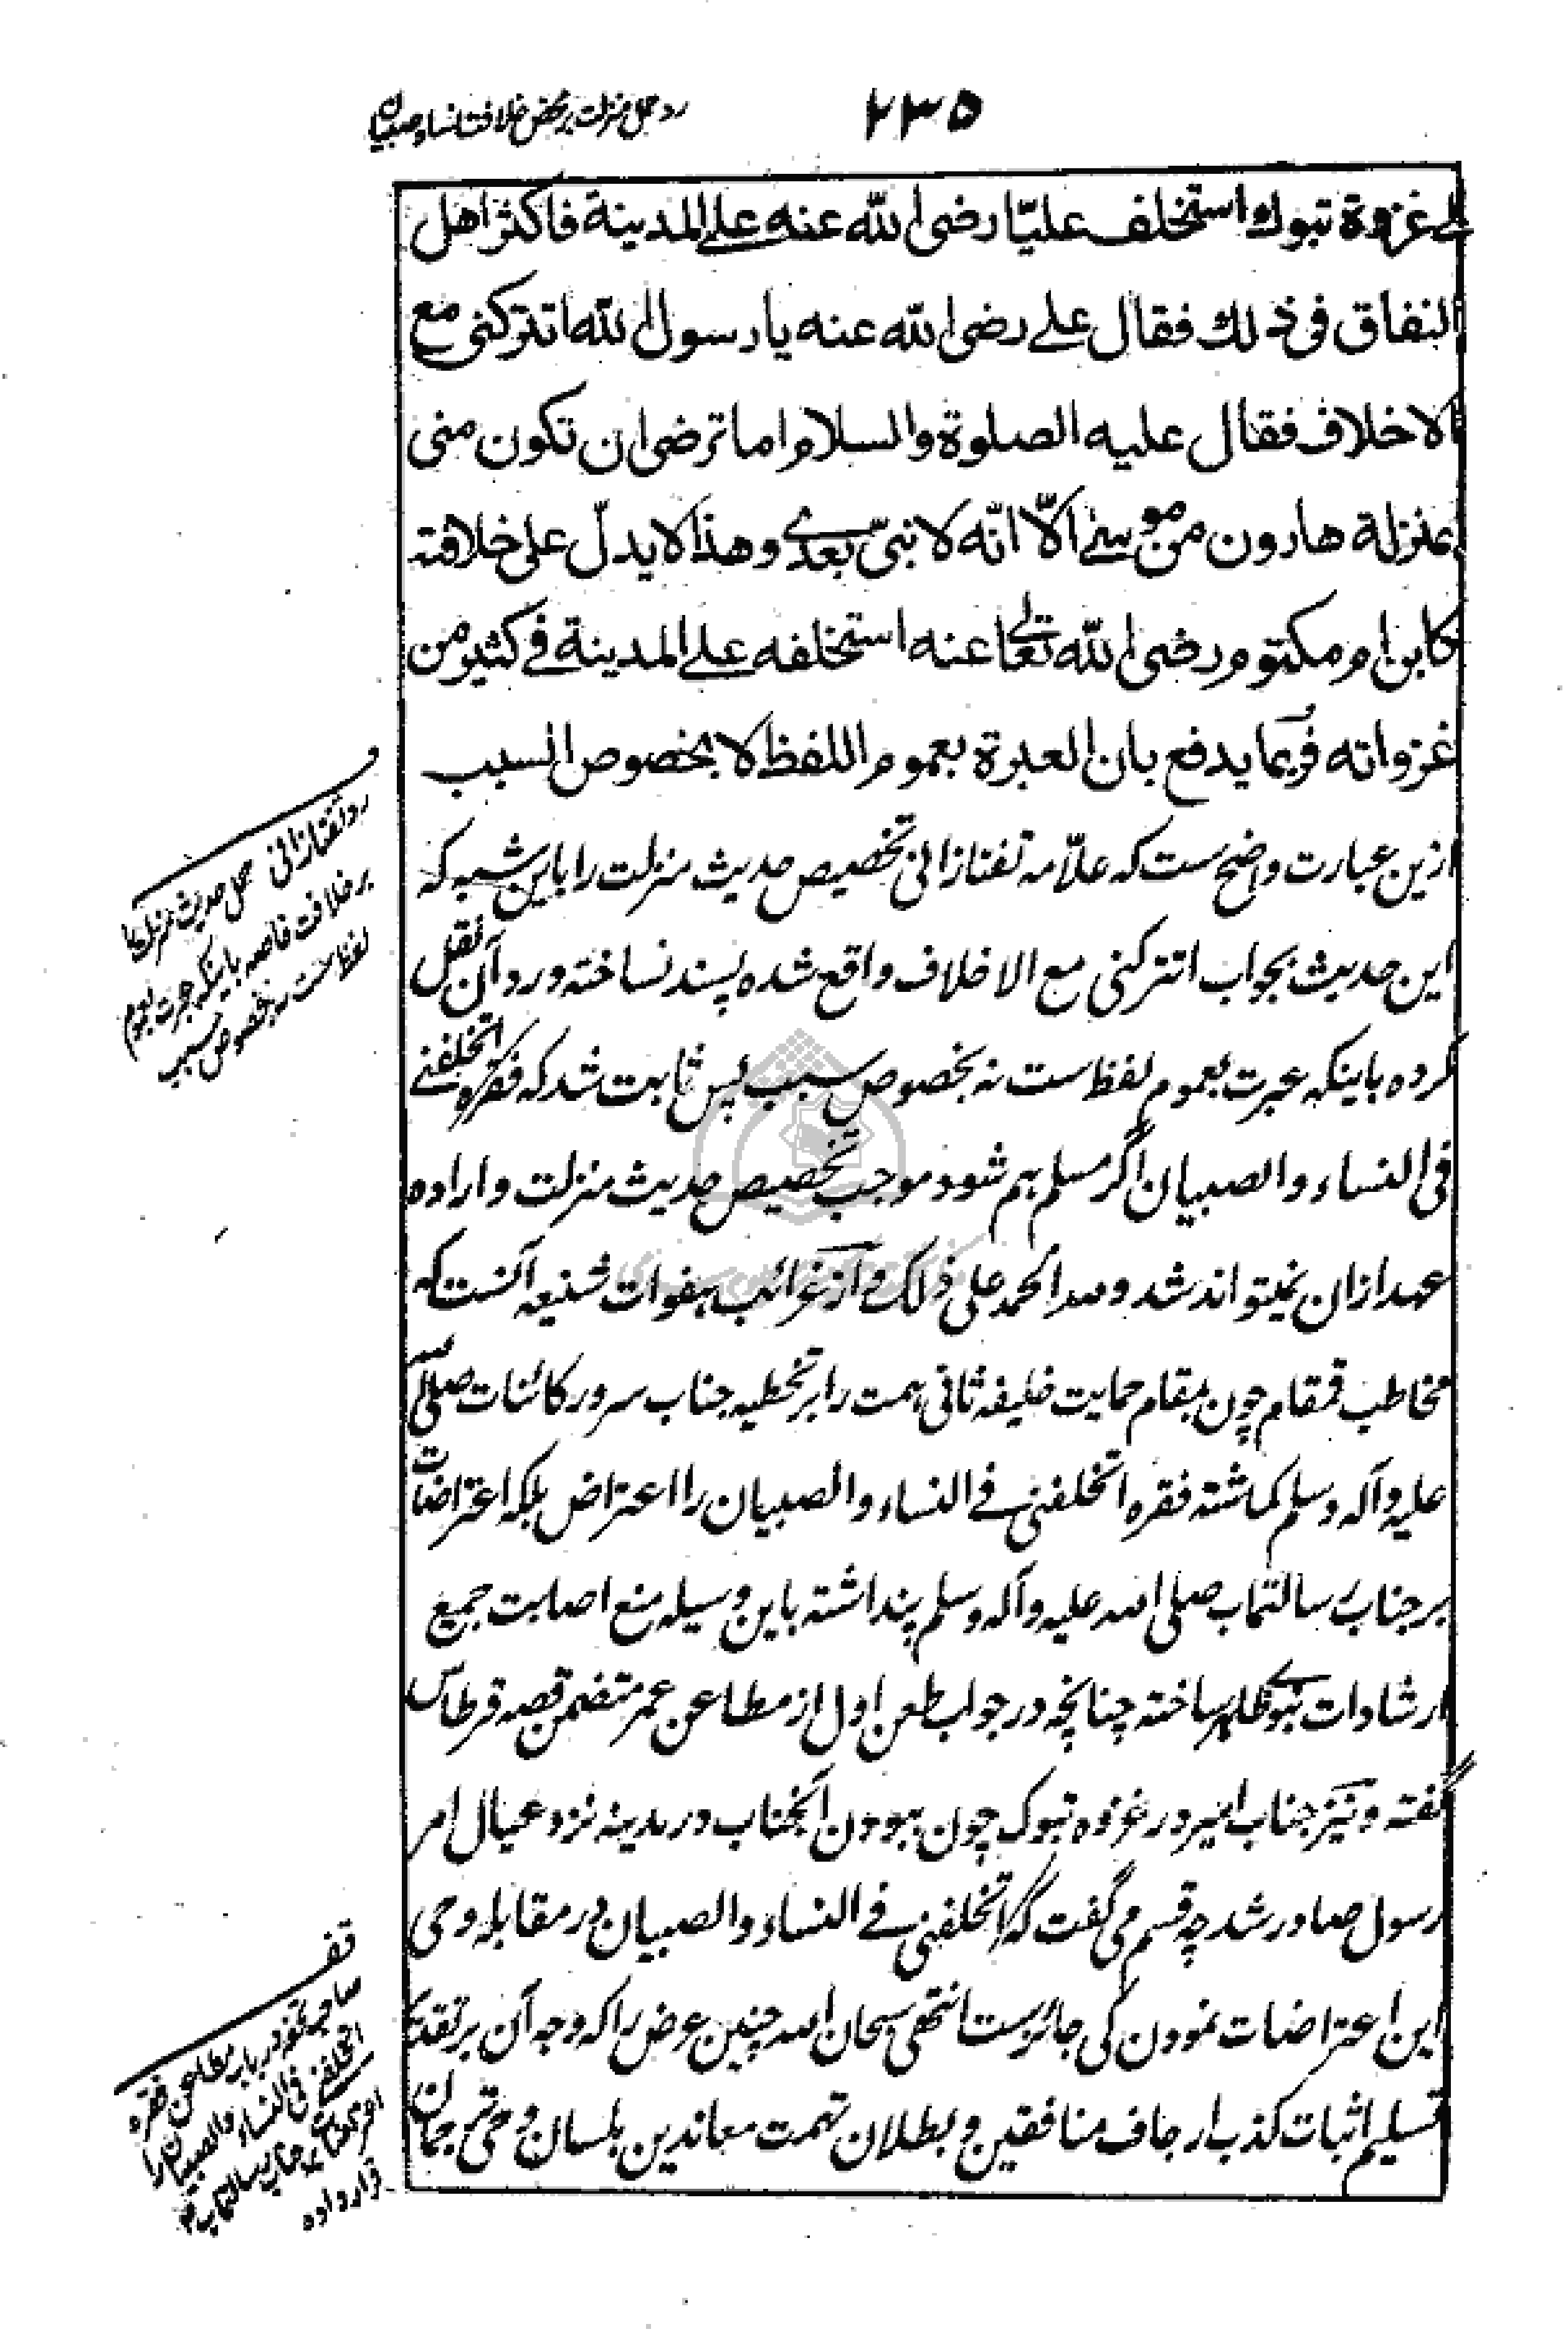 ۲۳۵
رد حمل منزلت بر محض خلافت نساء و صبیان
الی غزوة تبوك واستخلف علیّا رضی الله عنه علی المدینة فاکثر اهل
النفاق فی ذلك فقال علی رضی الله عنه یا رسول الله اتترکنی مع
الاخلاف فقال علیه الصلوة والسلام اما ترضی ان تکون منی
بمنزلة هارون من موسی الّا انّه لا نبیّ بعدی وهذا لا یدلّ علی خلافته
کابن ام مکتوم رضی الله تعالی عنه استخلفه علی المدینة فی کثیر من
غزواته فربما یدفع بان العبرة بعموم اللفظ لا بخصوص السبب
ازین عبارت واضح ست که علّامه تفتازانی تخصیص حدیث منزلت را باین شبهه که
این حدیث بجواب اتترکنی مع الاخلاف واقع شده پسند نساخته و رد آن نقل
کرده باینکه عبرت بعموم لفظ ست نه بخصوص سبب پس ثابت شد که فقره اتخلفنی
فی النساء والصبیان اگر مسلم هم شود موجب تخصیص حدیث منزلت و اراده
عهد ازان نمیتواند شد ولله الحمد علی ذلک و از غرائب هفوات شنیعه آنست که
مخاطب قمقام چون بمقام حمایت خلیفه ثانی همت را بر تخطیه جناب سرور کائنات صلی الله
علیه وآله وسلم گماشته فقره اتخلفنی فی النساء والصبیان را اعتراض بلکه اعتراضات
بر جناب رسالتمآب صلی الله علیه وآله وسلم پنداشته باین وسیله منع اصابت جمیع
ارشادات نبوی ظاهر ساخته چنانچه در جواب طعن اول از مطاعن عمر متضمن قصه قرطاس
گفته و نیز جناب امیر در غزوه تبوک چون ببودن آنجناب در مدینه نزد عیال امر
رسول صادر شد چه قسم می گفت که اتخلفنی فی النساء والصبیان در مقابله وحی
این اعتراضات نمودن کی جائز ست انتهی سبحان الله چنین عرض را که وجه آن بر تقدیر
تسلیم اثبات کذب ارجاف منافقین و بطلان تهمت معاندین بلسان وحی ترجمان
رد تفتازانی حمل حدیث منزلت را
بر خلافت خاصه باینکه عبرت بعموم
لفظ ست نه بخصوص سبب
صاحب تحفه در باب مطاعن فقره
اتخلفنی فی النساء والصبیان را
اعتراضات بر جناب رسالتمآب
قرار داده